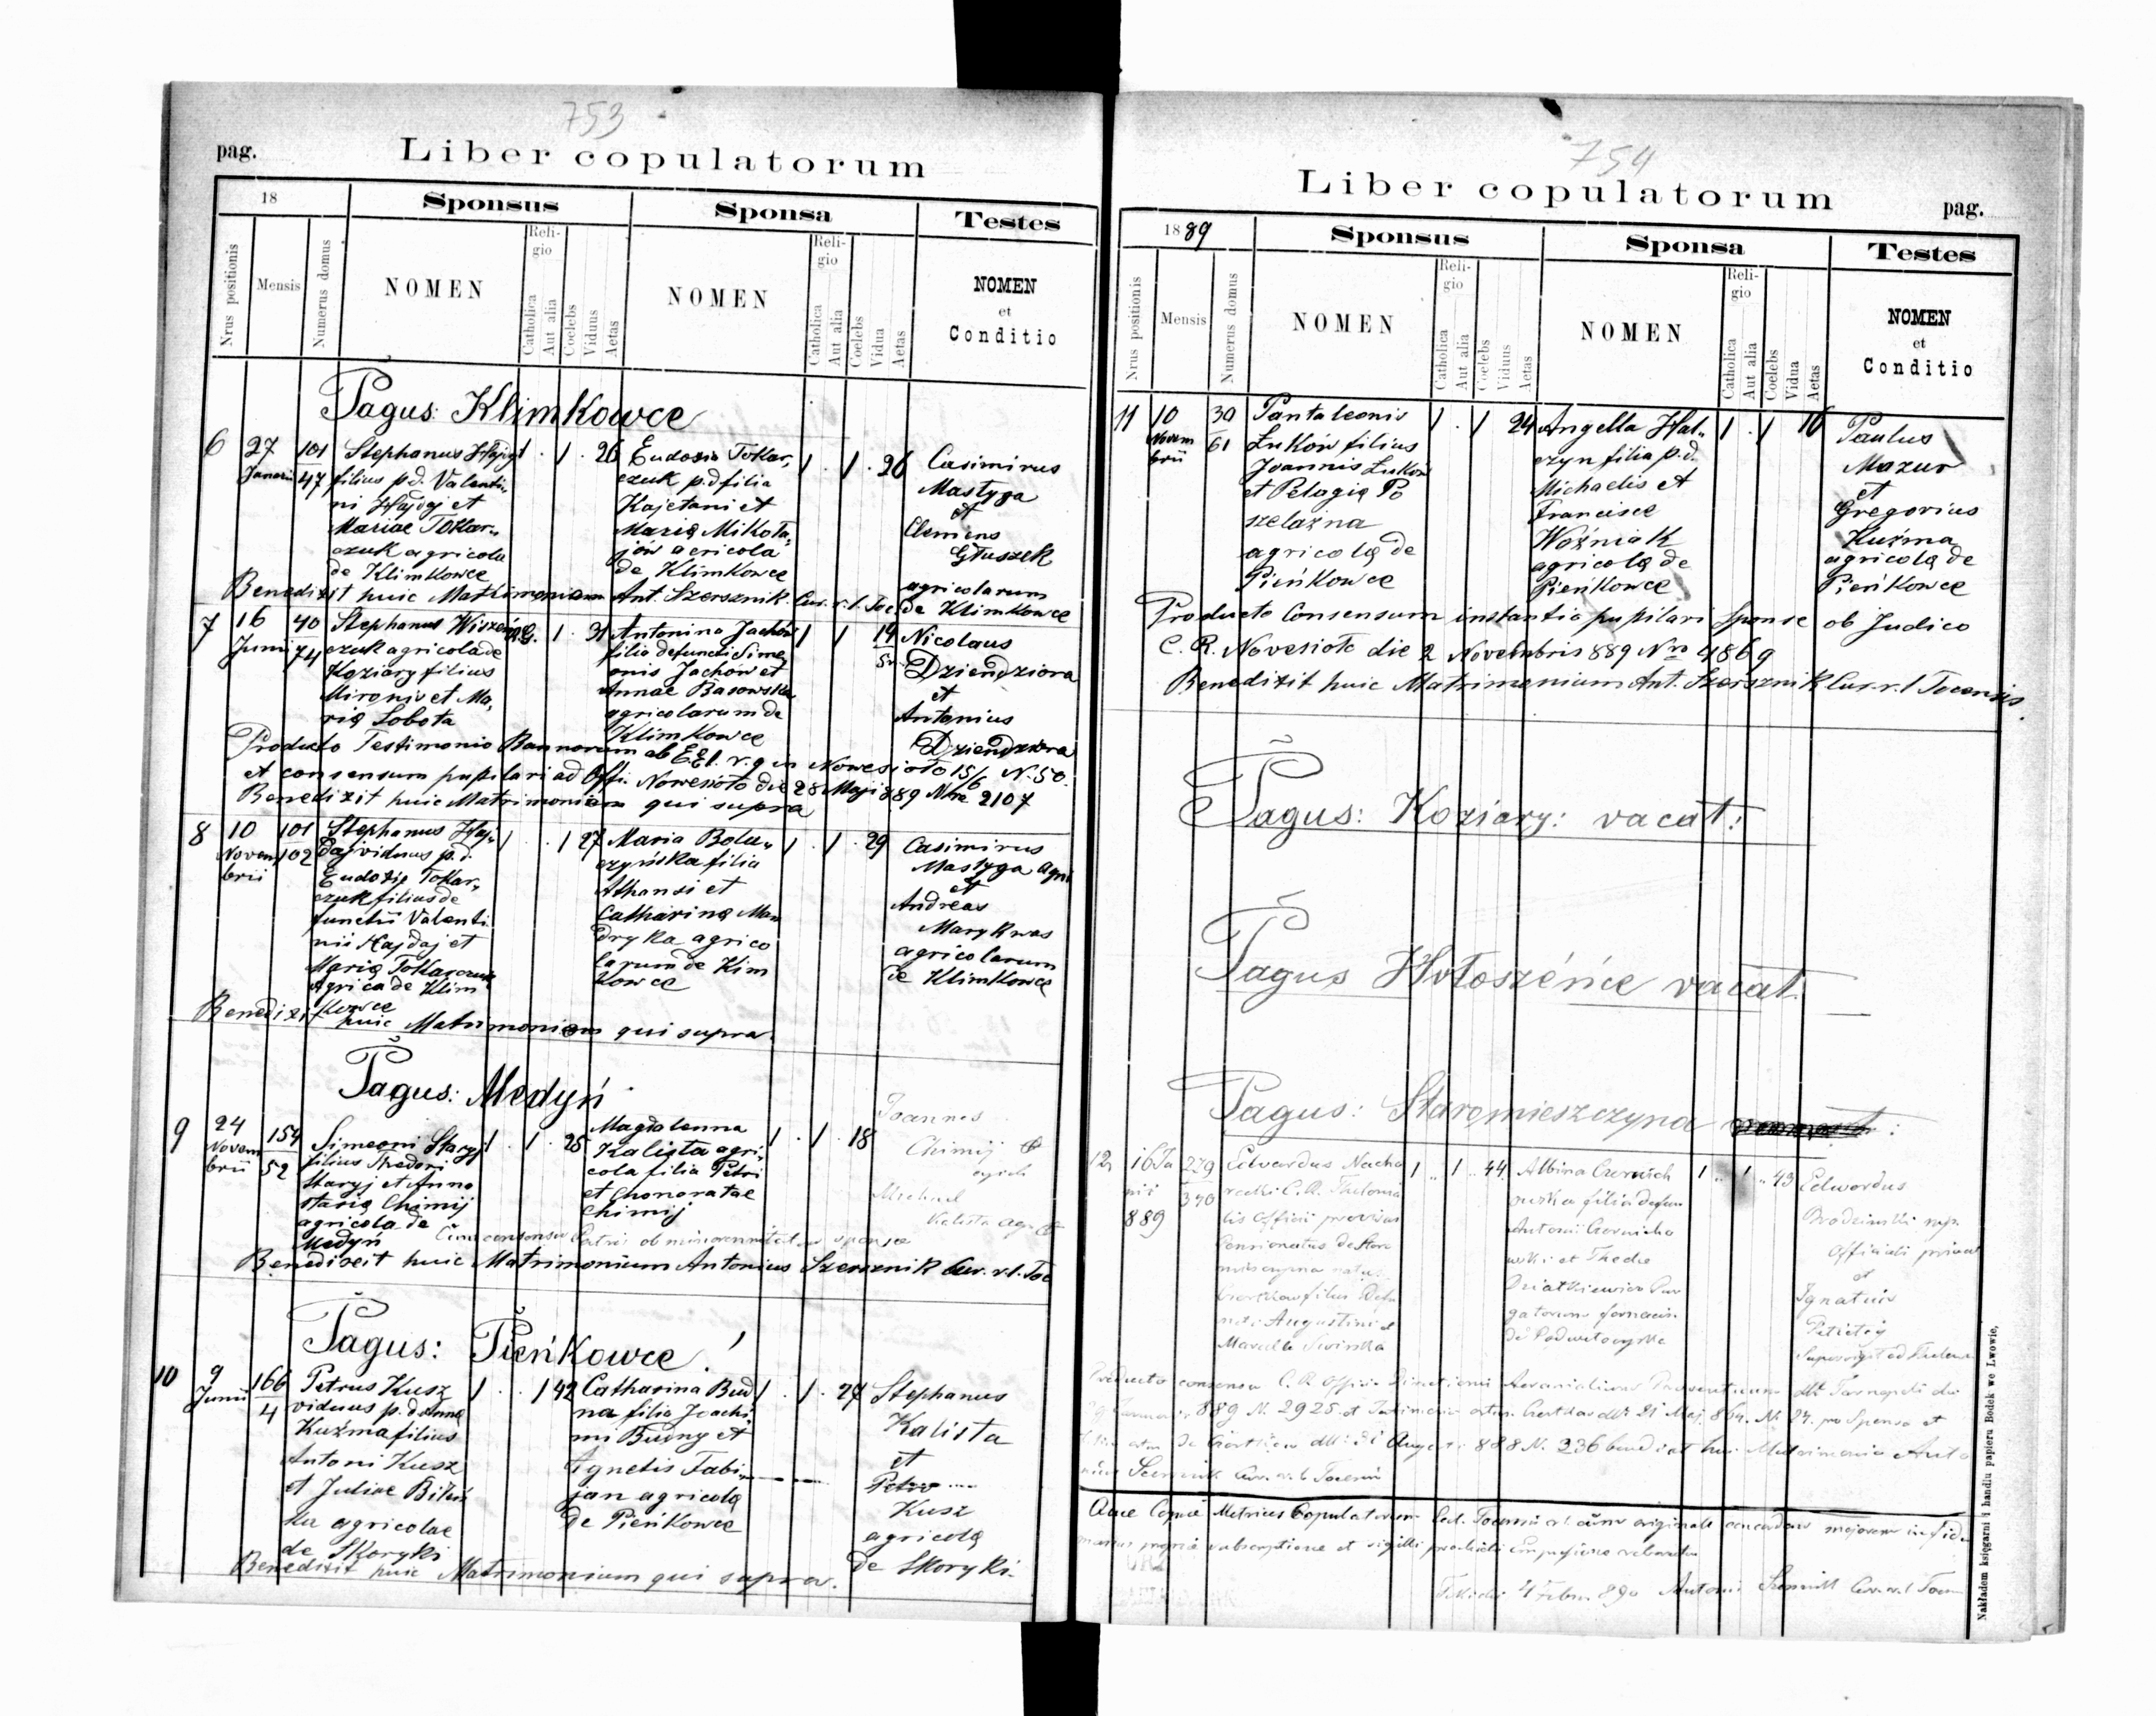 753
pag.
Liber copulatorum
18
Sponsus
Sponsa
Testes
Nrus positionis
Mensis
Numerus domus
NOMEN
Religio
Catholica
Aut alia
Coelebs
Viduus
Aetas
NOMEN
Religio
Catholica
Aut alia
Coelebs
Vidua
Aetas
NOMEN
et
Conditio
Pagus: Klimkowce
6 27 Januarii 101 47
Stephanus Hajdaj
filius p.d. Valenti,,
ni Hajdaj et
Mariae Tokar,,
czuk agricola
de Klimkowce
1 . 1 . 26
Eudosia Tokar,
czuk p.d filia
Kajetani et
Marią Mikoła,
jów agricola
de Klimkowce
1 . 1 . 26
Casimirus
Mastyga
et
Clemens
Głuszek
agricolarum
de Klimkowce
Benedixit huic Matrimonium Ant. Szersznik Cur. r. l. Toc
7 16 Junii 40 74
Stephanus
czuk agricola de
Koziary filius
Mironis et Ma,
rią Lobota
1 . 31
Antonina Jachów
filia defuncti Sime
onis Jachów et
Annae Basowska
agricolarum de
Klimkowce
1 1 19
Nicolaus
Dziendziora
et
Antonius
Dziendziora
Producto Testimonio Bannorum ab in Nowesioło 15/6 N. 50.
et consensum pupilari ad Offi. Nowesioło die 28 Maji 889 Nro 2107
Benedixit huic Matrimonium qui supra
8 10 Novembrii 101 102
Stephanus Haj,,
daj viduus p.d.
Eudoxię Tokar,,
czuk filius de
functii Valenti
nii Hajdaj et
Marią Tokarczuk
Agrica de Klim
kowce
1 . . 1 27
Maria Bolu,,
czyńska filia
Athanasi et
Catharinę Man
dryka agrico
larum de Kim
kowce
1 . 1 . 29
Casimirus
Mastyga Agri
et
Andreas
Marykwas
agricolarum
de Klimkowce
Benedixit huic Matrimonium qui supra.
Pagus: Medyń
9 24 Novembrii 154 52
Simeoni Staryj
filius Thedori
Staryj et Anna
starią Chimij
agricola de
Medyń
1 . 1 . 25
Magdalenna
Kalista agri,
cola filia Petri
et Chonoratae
Chimij
1 . 1 . 18
Joannes
Chimij et
Michael
Kalista
Cum consensu Patri ob minorennitatem sponsae
Benedixit huic Matrimonium Antonius Szersznik Cur. r. l. Toc
Pagus: Pieńkowce!
10 9 Junii 166 4
Petrus Kusz
viduus p.d Anną
Kuźma filius
Antoni Kusz
et Juliae
agricolae
de Skoryki
1 . . 1 42
Catharina Bud
na filia Joachi,
mi Budny et
Agnetis Fabi,,
jan agricolą
de Pieńkowce
1 . 1 . 24
Stephanus
Kalista
et
Petro
Kusz
agricolą
de Skoryki.
Benedixit huic Matrimonium qui supra.
754
Liber copulatorum
pag.
1889
Sponsus
Sponsa
Testes
Nrus positionis
Mensis
Numerus domus
NOMEN
Religio
Catholica
Aut alia
Coelebs
Viduus
Aetas
NOMEN
Religio
Catholica
Aut alia
Coelebs
Vidua
Aetas
NOMEN
et
Conditio
11 10 Novembrii 30 61
Pantaleonis
Łuków filius
Joannis Łuków
et Pelagię Po
szelaźna
agricolą de
Pieńkowce
1 . 1 24
Angella Hał,,
czyn filia p.d.
Michaelis et
Francisce
Woźniak
agricolą de
Pieńkowce
1 . 1 16
Paulus
Mazur
et
Gregorius
Kuźma
agricolą de
Pieńkowce
Producto Consensum instantia pupilari Sponse ob Judico
C. R. Novesioło die 2 Novembris 889 Nro 4869
Benedixit huic Matrimonium Ant. Szersznik Cur. r. l Tocensis.
Pagus: Koziary: vacat:
Pagus Hołoszéńce vacat.
Pagus: Staromieszczyna
12 16 Ja
nii
889
279 370
Edvardus Nacho
recki C. R. Thelonia
lis Officii
Pensionatus de Staro
mieszczyna natus
filius Defu
ncti Augustini et
Marcella Siwińska
1 . 1 . 44
Albina Czernich
owska filia defun
Antoni Czernicho
wski et Thecla
de Podwołoczyska
1 . 1 . 43
Edwardus
Officiali
et
Ignatius
Producto consensu C. R. ddto Tarnopoli
889 N. 2925 et 21 Maj 864. N. 24. pro Sponso et
888 N. 236 huic Matrimonio Anto
nius Szersznik Cur. r. l Tocensis
Copulatorum cum originale concordare
manus propria subscriptione et sigilli
4 Febru 890 Antoni Szersznik Cur. r. l Tocen
Nakładem księgarni i handlu papieru Bodek we Lwowie,